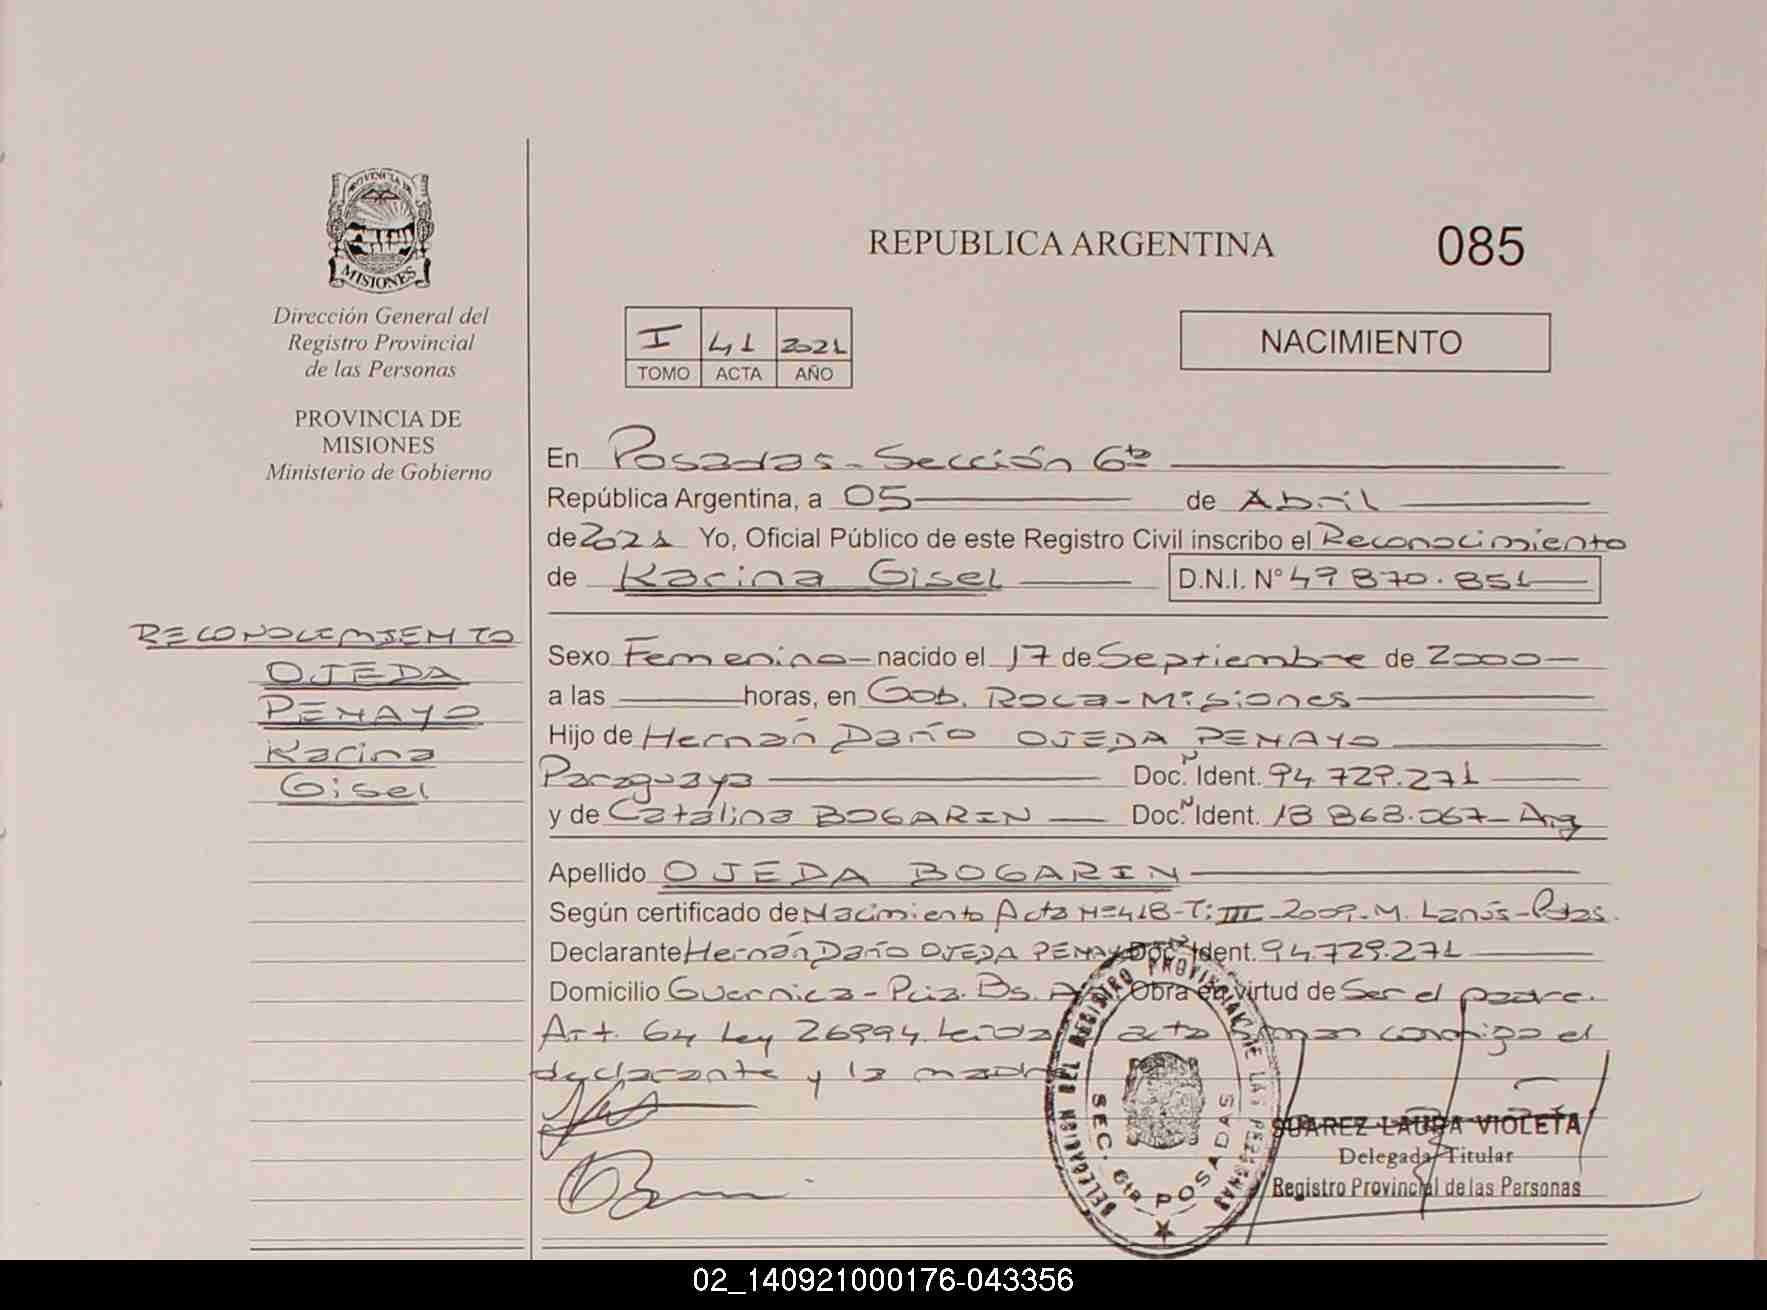 PROVINCIA DE
MISIONES
Dirección General del
Registro Provincial
de las Personas
PROVINCIA DE
MISIONES
Ministerio de Gobierno
RECONOCIMIENTO
OJEDA
PENAYO
Karina
Gisel
REPUBLICA ARGENTINA
085
I 41 2021
TOMO ACTA AÑO
NACIMIENTO
En Posadas - Sección 6ta
República Argentina, a 05 de Abril
de 2021 Yo, Oficial Público de este Registro Civil inscribo el Reconocimiento
de Karina Gisel D.N.I. N° 49 870.851
Sexo Femenino nacido el 17 de Septiembre de 2000
a las horas, en Gob. Roca - Misiones
Hijo de Hernán Darío OJEDA PENAYO
Paraguaya Doc. N Ident. 94.729.271
y de Catalina BOGARIN Doc. N Ident. 18 868.067 - Arg
Apellido OJEDA BOGARIN
Según certificado de Nacimiento Acta Nº 418 - T: III - 2009 - M. Lanús - Pdas.
Declarante Hernán Darío OJEDA PENAYO Doc. N Ident. 94.729.271
Domicilio Guernica - Pcia. Bs. Obra en virtud de Ser el padre.
Art. 64 Ley 26994. Leída acta conmigo el
declarante y la madre
DELEGACIÓN DEL REGISTRO PROVINCIAL DE LAS PERSONAS
SEC. 6ta POSADAS
SUAREZ LAURA VIOLETA
Delegada Titular
Registro Provincial de las Personas
02_140921000176-043356